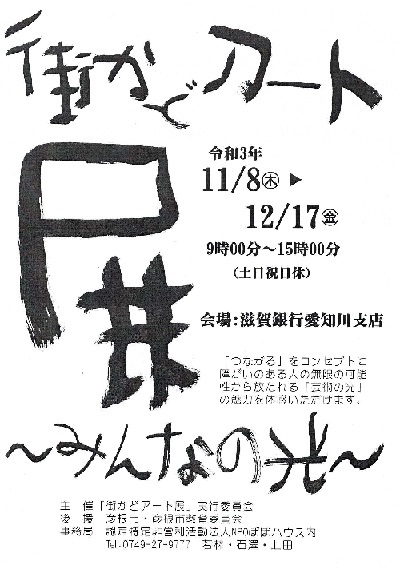 街かどアート
令和3年
11/8㊍ ▶
12/17㊎
9時00分～15時00分
(土日祝日休)
会場：滋賀銀行愛知川支店
「つながる」をコンセプトに
障がいのある人の無限の可能
性から放たれる「芸術の光」
の魅力を体感いただけます。
～みんなの光～
主 催「街かどアート展」実行委員会
後 援 彦根市・彦根市教育委員会
事務局 認定特定非営利活動法人NPOぽぽハウス内
Tel.0749-27-9777 若林・石澤・上田